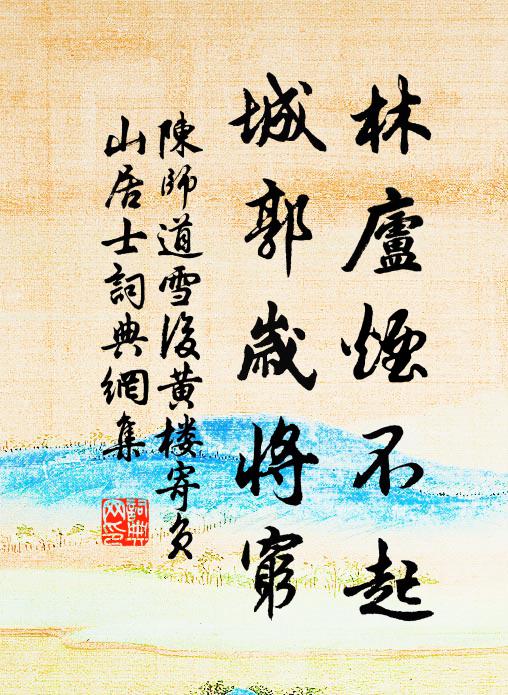 林廬煙不起
城郭歲將窮
陳師道雪後黃楼寄負
山居士詞典網集